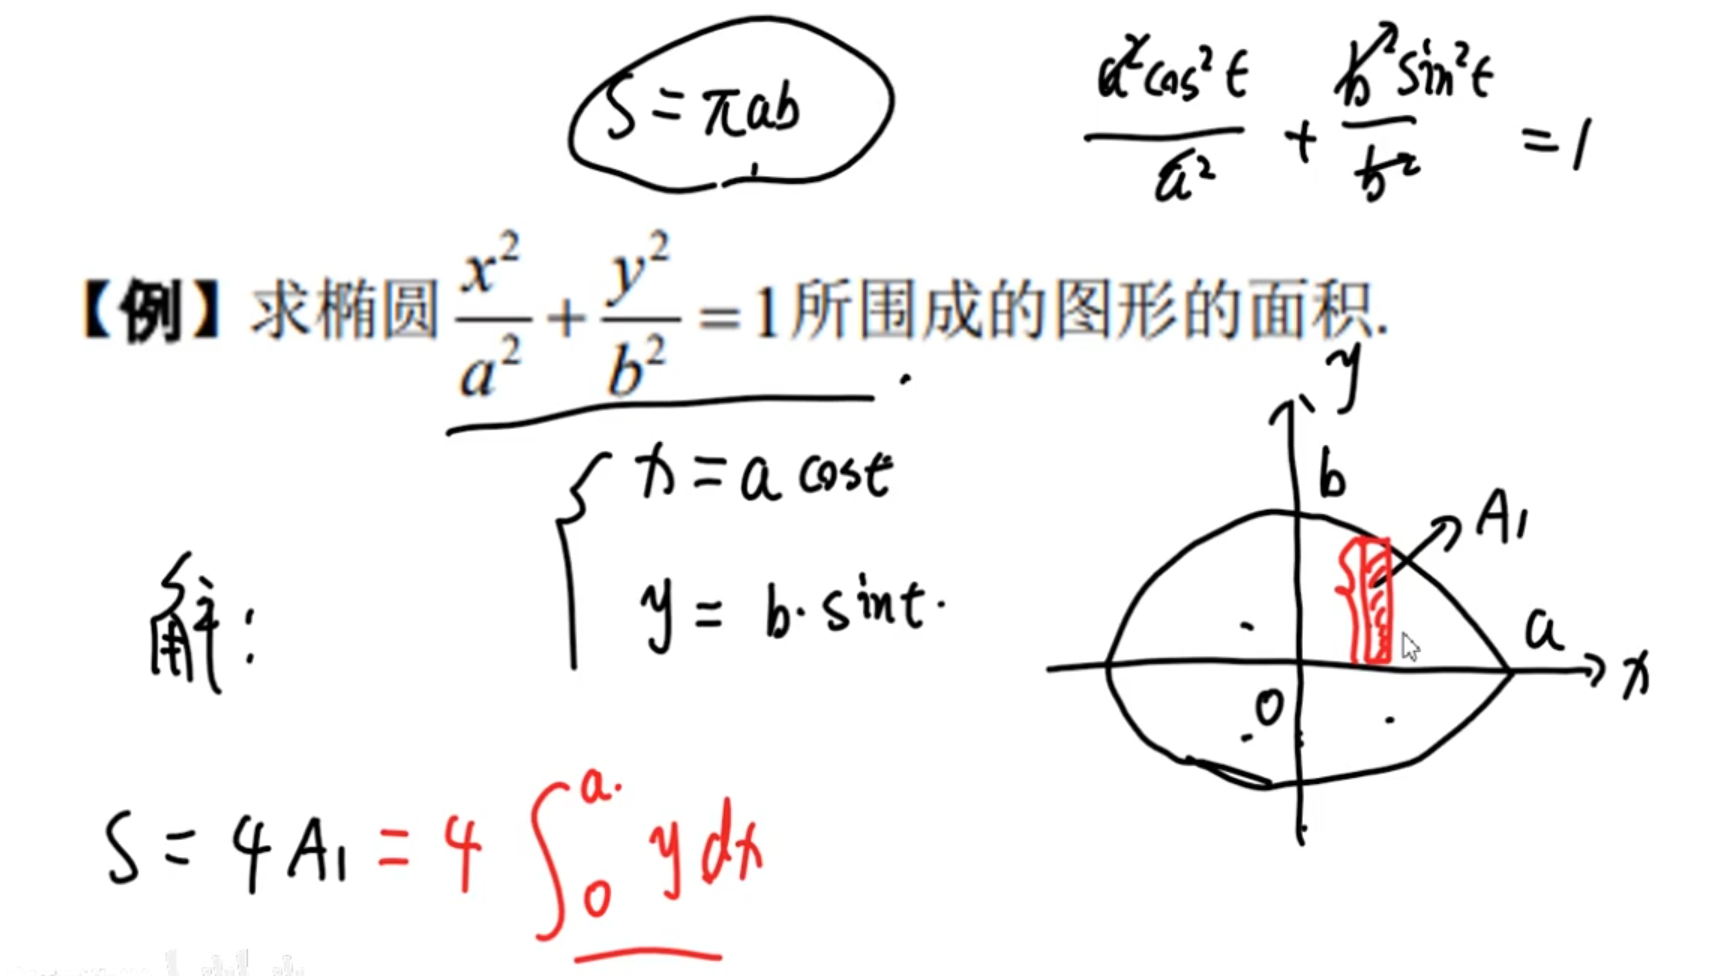 S = πab
a²cos²t / a² + b²sin²t / b² = 1
【例】求椭圆 x²/a² + y²/b² = 1所围成的图形的面积.
x = a cost
y = b·sint.
解:
y
b
A₁
a
x
0
S = 4A₁ = 4∫₀ᵃ y dx